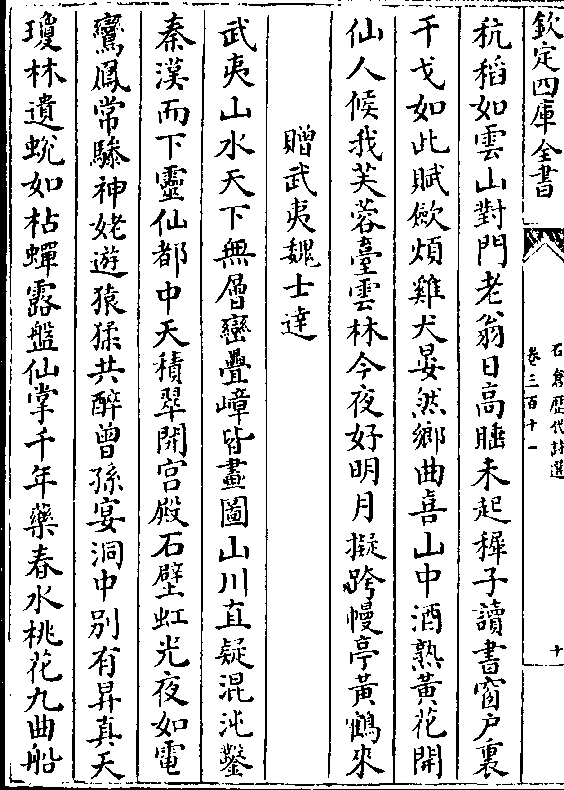 欽定四庫全書
石倉歴代詩選
卷三百十一
十
秔稻如雲山對門老翁日高睡未起稺子讀書窗户裏
干戈如此賦歛煩雞犬晏然鄉曲喜山中酒熟黄花開
仙人候我芙蓉臺雲林今夜好明月擬跨幔亭黄鶴來
贈武夷魏士達
武夷山水天下無層巒疊嶂皆畫圖山川直疑混沌鑿
秦漢而下靈仙都中天積翠開宫殿石壁虹光夜如電
鸞鳳常驂神姥遊猿猱共醉曾孫宴洞中别有昇真天
瓊林遺蜕如枯蟬露盤仙掌千年藥春水桃花九曲船